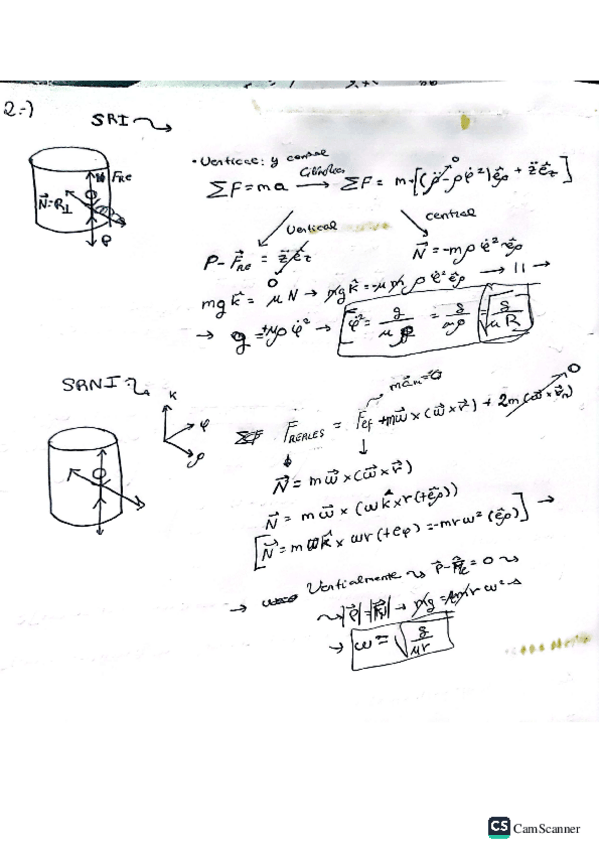 2.-)
SRI
• Vertical: y central
ΣF = ma → Cilíndricas ΣF = m·[(ρ̈ - ρφ̇²)êρ + z̈ êz]
0
Vertical
central
P - F⃗Re = z̈ êz
0
N⃗ = -mρ φ̇² êρ
mg k̂ = μ N → mg k̂ = -μ m ρ φ̇² êρ → 11 →
→ g = +μρ φ̇² → φ̇² = g/μρ = g/mρ = √(g/μR)
FRe
N⃗ = R⊥
P
SRNI:
K
φ
ρ
m a⃗n = 0
0
ΣF F⃗REALES = F⃗ef + mω⃗ × (ω⃗ × r⃗) + 2m(ω⃗ × v⃗n)
N⃗ = m ω⃗ × (ω⃗ × r⃗)
N⃗ = m ω⃗ × (ω k̂ × r(+êρ))
[N⃗ = m ω k̂ × ωr (+eφ) = -mrω² (êρ)] →
→ Verticalmente ⤳ P⃗ - F⃗Re = 0 ⤳
⤳ |P⃗| = |F⃗R| → mg = μmrω² →
→ ω = √(g/μr)
CS CamScanner